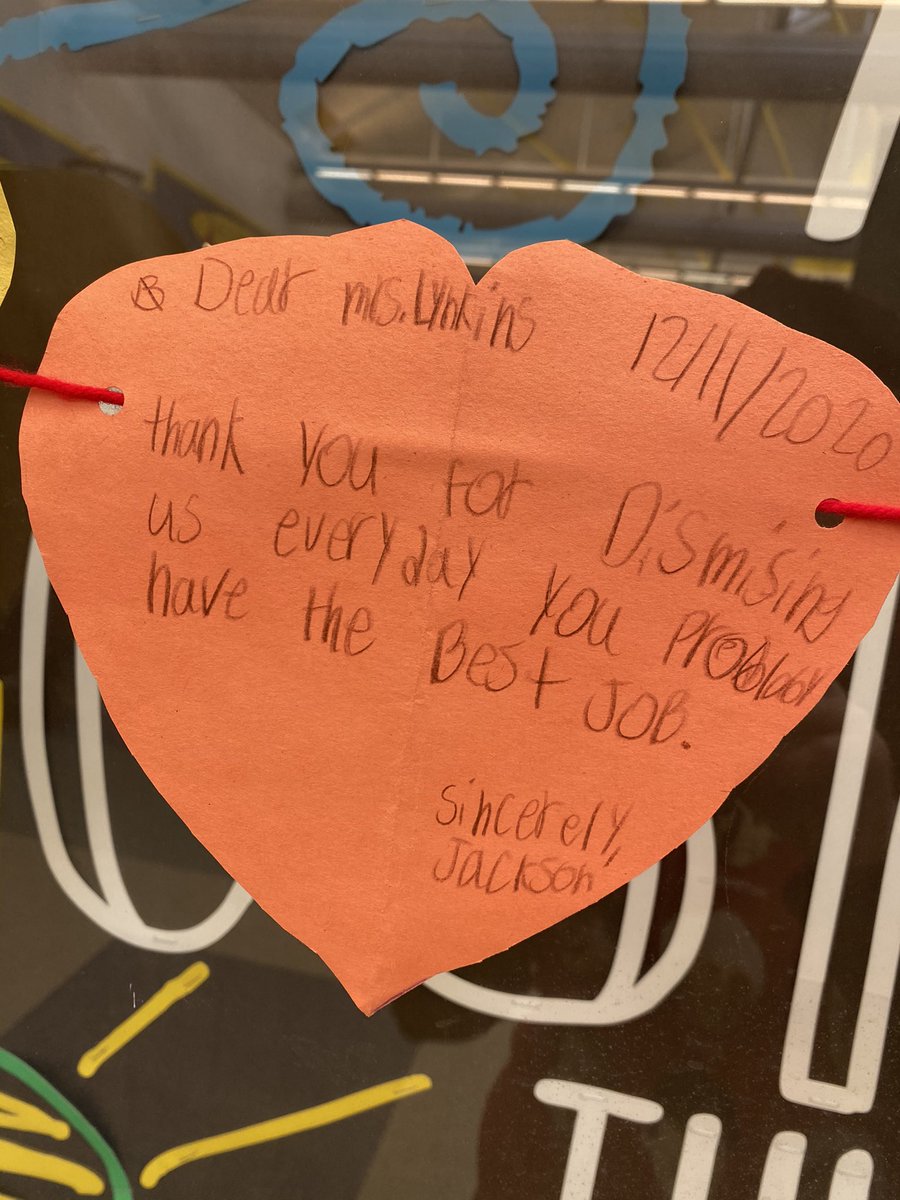 Dear mrs. Lynkins 12/11/2020
thank you for Dismising
us everyday you problaby
have the Best JOB.
sincerely,
Jackson